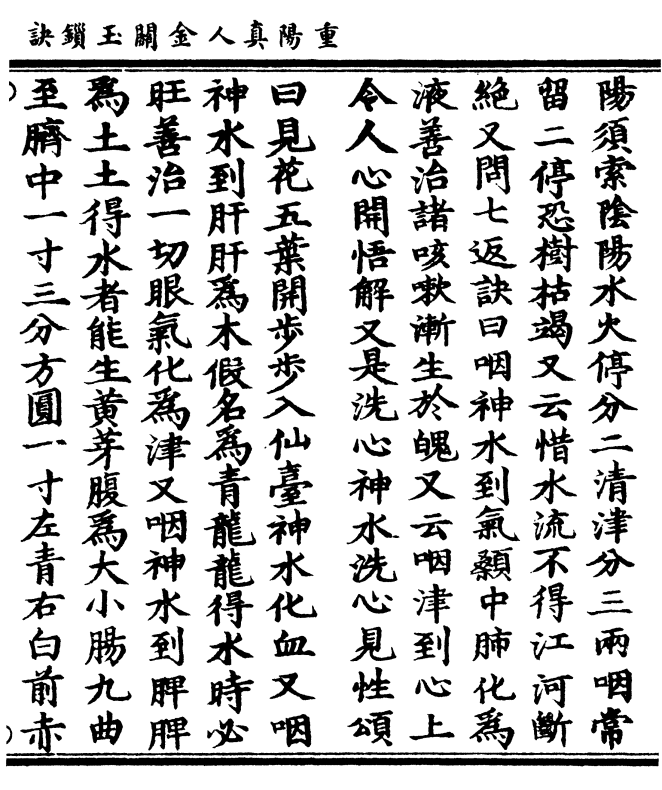 重陽真人金關玉鎖訣
陽須索陰陽水火停分二清津分三兩咽常
留二停恐樹枯竭又云惜水流不得江河斷
絶又問七返訣曰咽神水到氣顙中肺化爲
液善治諸咳嗽漸生於魄又云咽津到心上
令人心開悟解又是洗心神水洗心見性頌
曰見花五葉開步步入仙臺神水化血又咽
神水到肝肝爲木假名爲青龍龍得水時必
旺善治一切眼氣化爲津又咽神水到脾脾
爲土土得水者能生黄芽腹爲大小腸九曲
至臍中一寸三分方圓一寸左青右白前赤